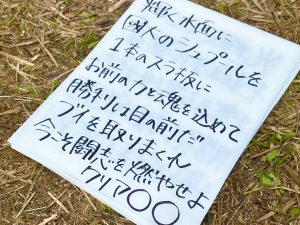 輝く水面に
国人のシュプールを
1本のスラ板に
お前の力と魂を込めて
勝利は目の前だ
ブイを取りまくれ
今こそ闘志を燃やせよ
クリア○○